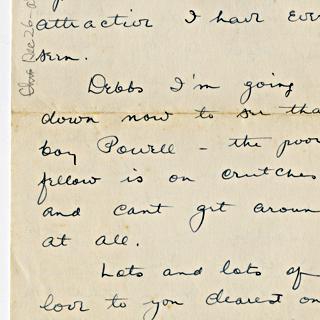 attractive I have ever
seen.
Debbs I'm going
down now to see tha
boy Powell - the poor
fellow is on crutches
and cant get aroun
at all.
Lots and lots of
love to you dearest on